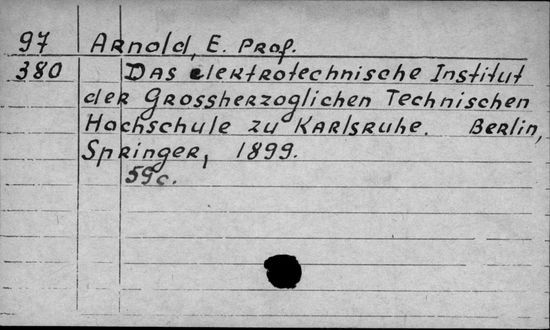 97 Arnold, E. Prof.
380 Das elektrotechnische Institut
der Grossherzoglichen Technischen
Hochschule zu Karlsruhe. Berlin,
Springer, 1899.
59c.